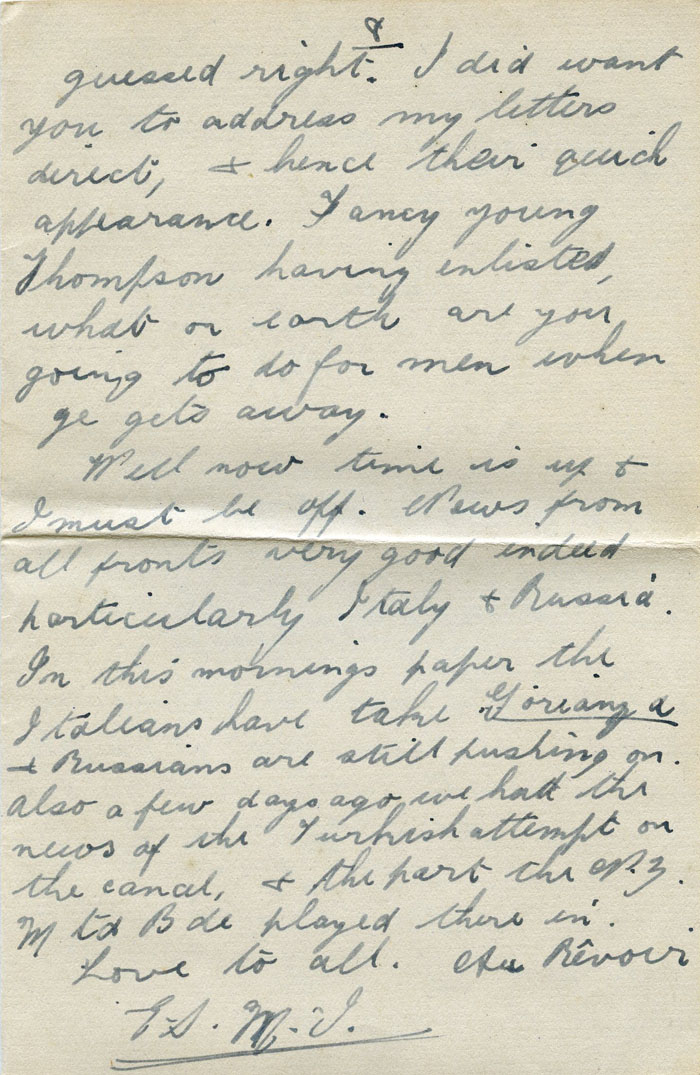 8
guessed right. I did want
you to address my letters
direct, & hence their quick
appearance. Fancy young
Thompson having enlisted,
what on earth are you
going to do for men when
ge gets away.
Well now time is up &
I must be off. News from
all fronts very good indeed
particularly Italy & Russia.
In this mornings paper the
Italians have take
& Russians are still pushing on.
Also a few days ago we had the
news of the Turkish attempt on
the canal, & the part the N.Z.
Mtd Bde played there in.
Love to all. Au Rêvoir
E.S. M.I.